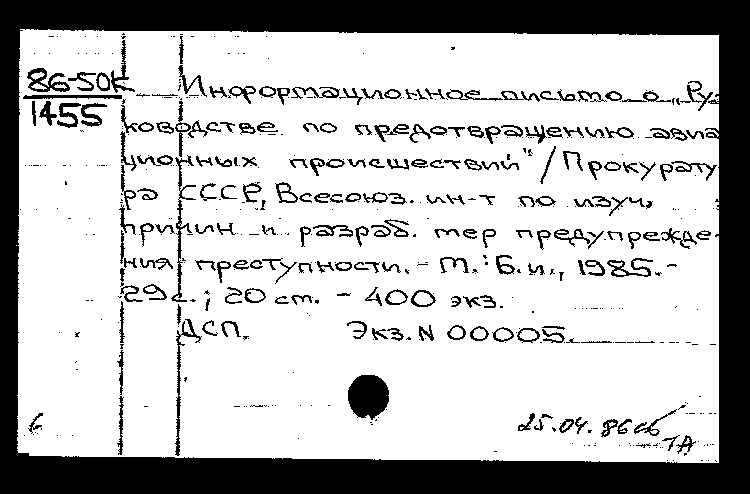 86-50К
1455
Информационное письмо о „Ру-
ководстве по предотвращению авиа
ционных происшествий" / Прокурату
ра СССР, Всесоюз. ин-т по изуч.
причин и разраб. мер предупрежде-
ния преступности. - М.: Б. и., 1985. -
29 с.; 20 см. - 400 экз.
ДСП. Экз. N 00005.
25.04.86